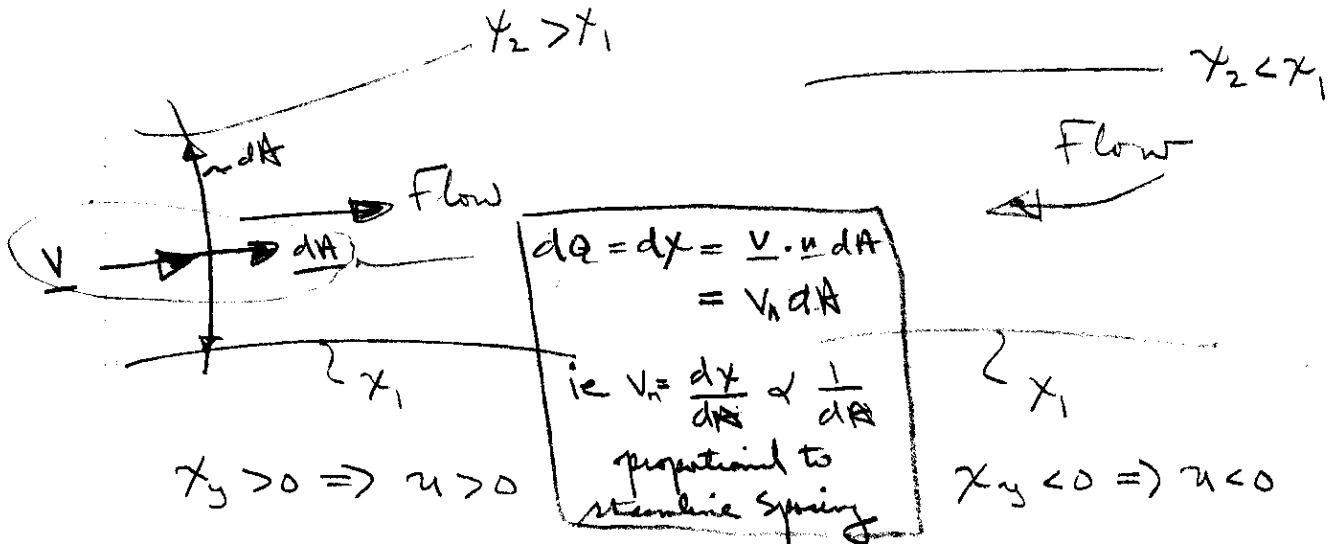 ψ₂ > ψ₁
ψ₂ < ψ₁
~dA
Flow
Flow
V
dA
dQ = dψ = V · n dA
= Vₙ dA
ie Vₙ = dψ/dA ∝ 1/dA
proportional to
streamline spacing
ψ₁
ψ₁
ψ_y > 0 => u > 0
ψ_y < 0 => u < 0